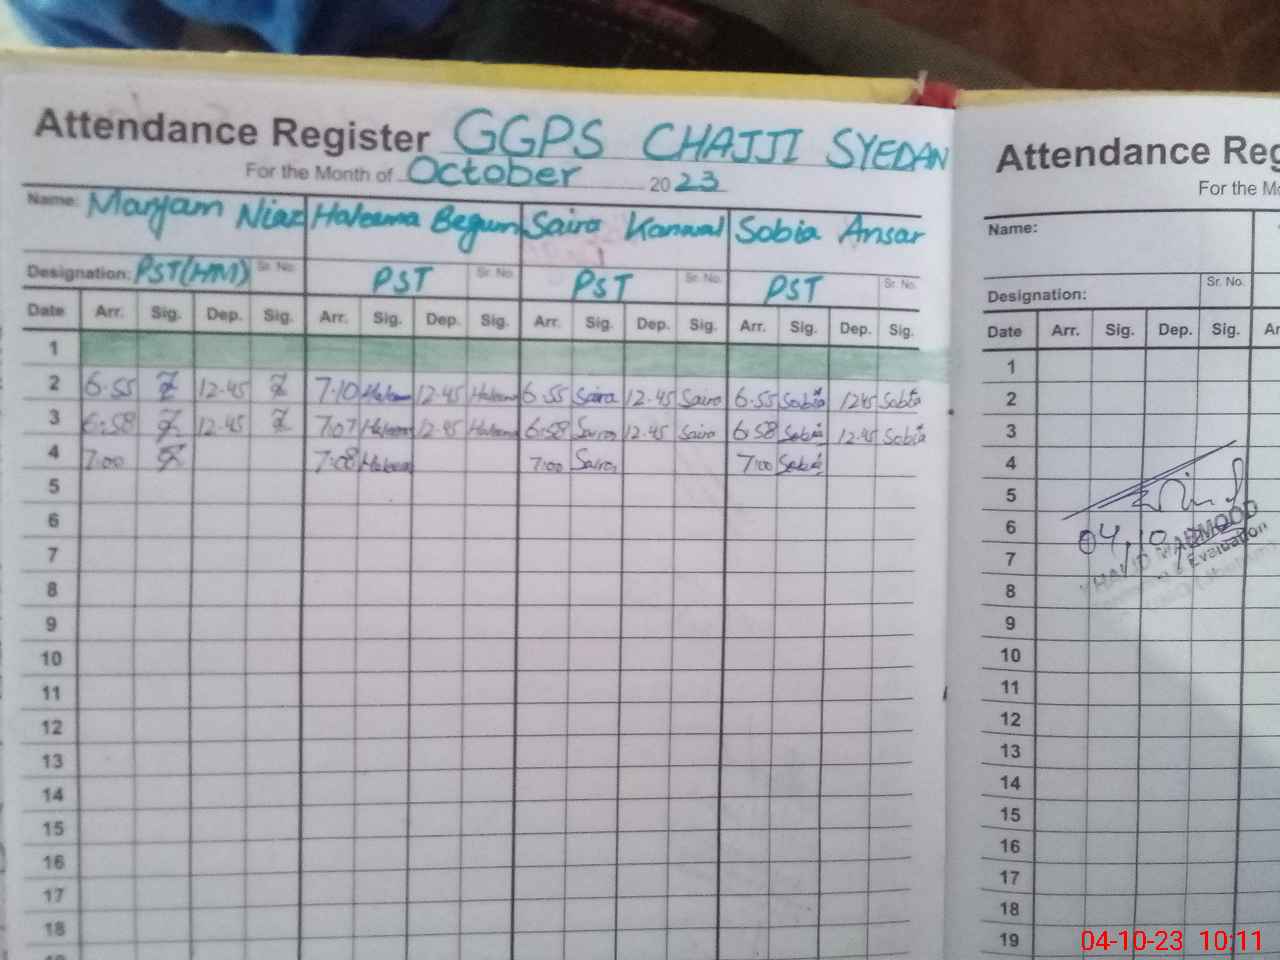 Attendance Register GGPS CHAJJI SYEDAN
For the Month of October 2023
Name: Maryam Niaz Haleema Begum Saira Kanwal Sobia Ansar
Designation: PST(HM) Sr. No. PST Sr. No. PST Sr. No. PST Sr. No.
Date Arr. Sig. Dep. Sig. Arr. Sig. Dep. Sig. Arr. Sig. Dep. Sig. Arr. Sig. Dep. Sig.
1
2 6.55 12.45 7.10 12.45 6.55 Saira 12.45 Saira 6.55 Sobia 1245 Sobia
3 6.58 12.45 7.07 12.45 6.58 Saira 12.45 Saira 6.58 Sobia 12.45 Sobia
4 7.00 7.08 7:00 Saira 7:00 Sobia
5
6
7
8
9
10
11
12
13
14
15
16
17
18
Attendance Reg
For the Mo
Name:
Designation: Sr. No.
Date Arr. Sig. Dep. Sig. Ar
1
2
3
4
5
6
7
8
9
10
11
12
13
14
15
16
17
18
19
04,10
MAHMOOD
Evaluation
04-10-23 10:11